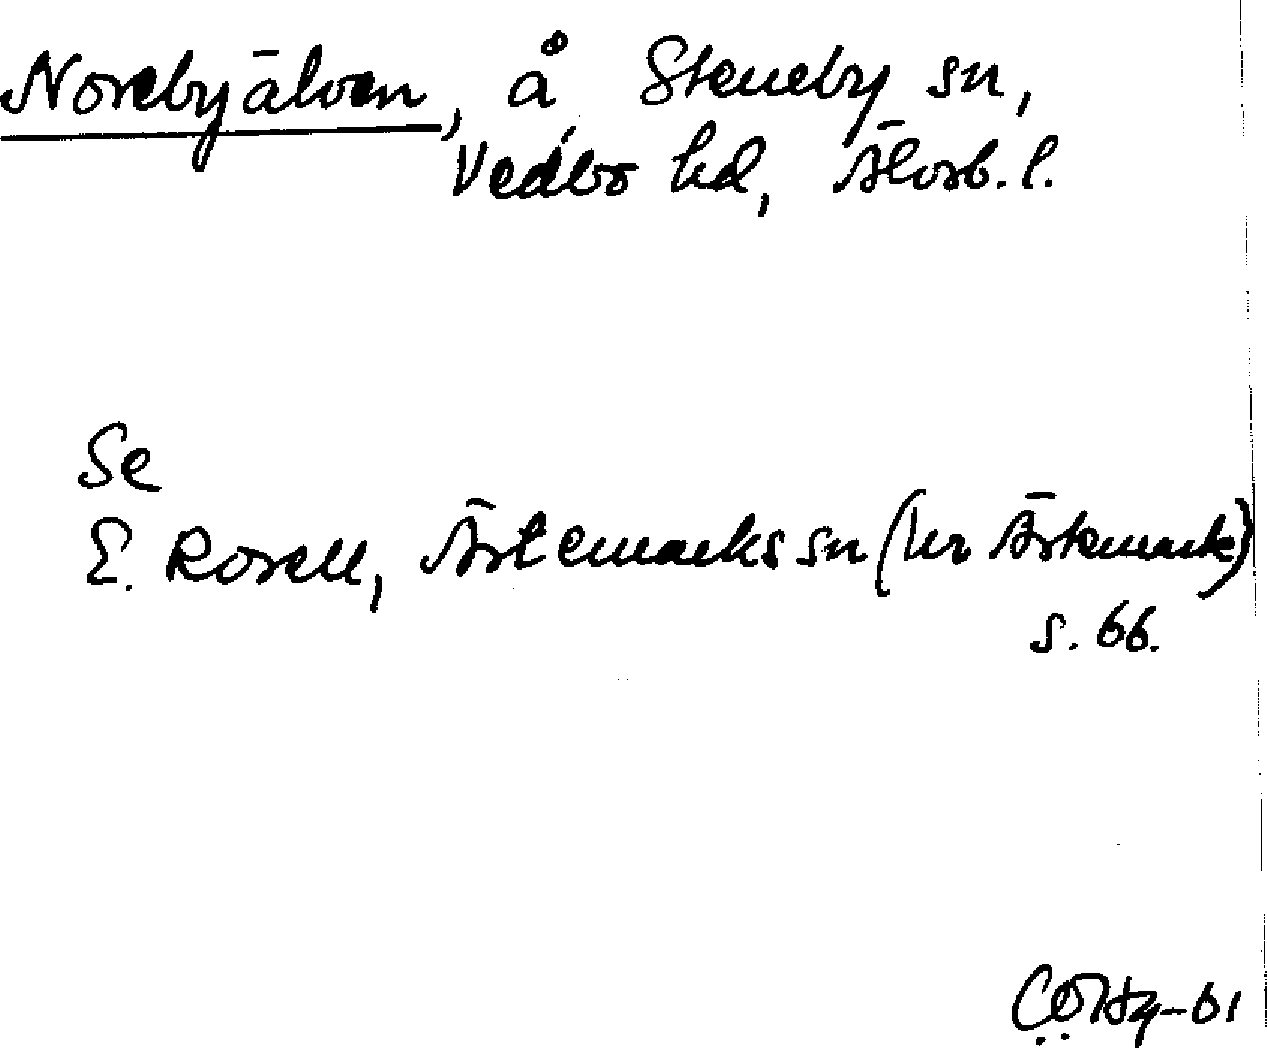 Norebyälven, å Steneby sn,
Vedbo hd, Älvsb. l.
Se
E. Rosell, Ärtemarks sn (ur Ärtemark)
s. 66.